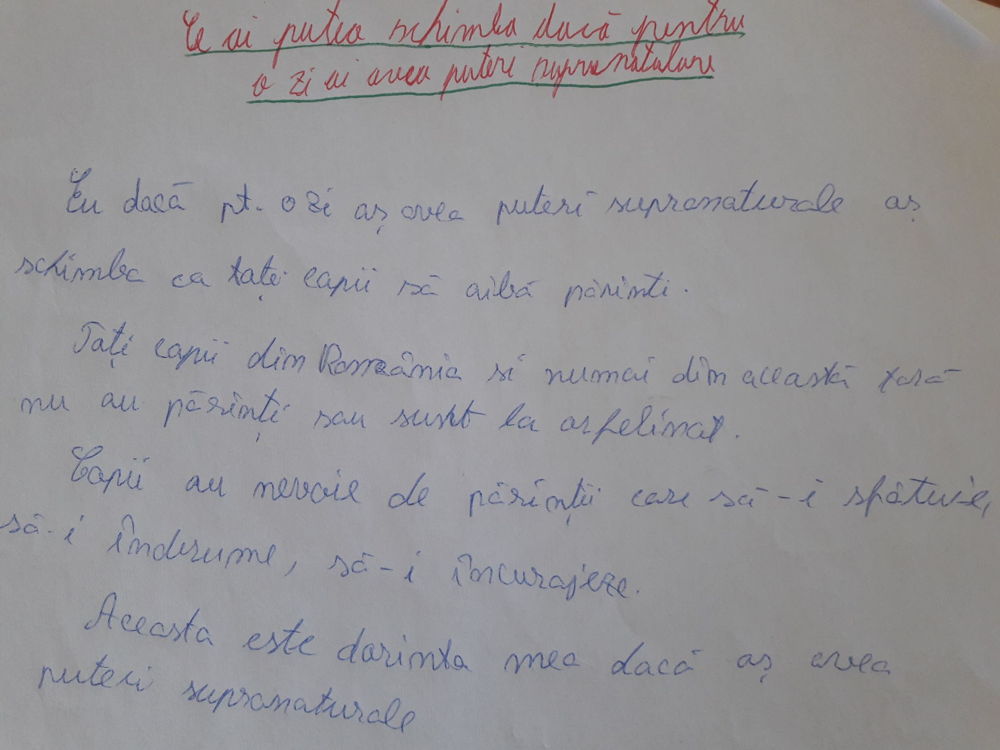 Ce ai putea schimba dacă pentru
o zi ai avea puteri supranaturale
Eu dacă pt. o zi aș avea puteri supranaturale aș
schimba ca tați copii să aibă părinti.
Tați copii din România si numai din această tară
nu au părinți sau sunt la orfelinat.
Copii au nevoie de părinții care să-i sfătuie,
să-i îndrume, să-i încurajeze.
Aceasta este dorinta mea dacă aș avea
puteri supranaturale